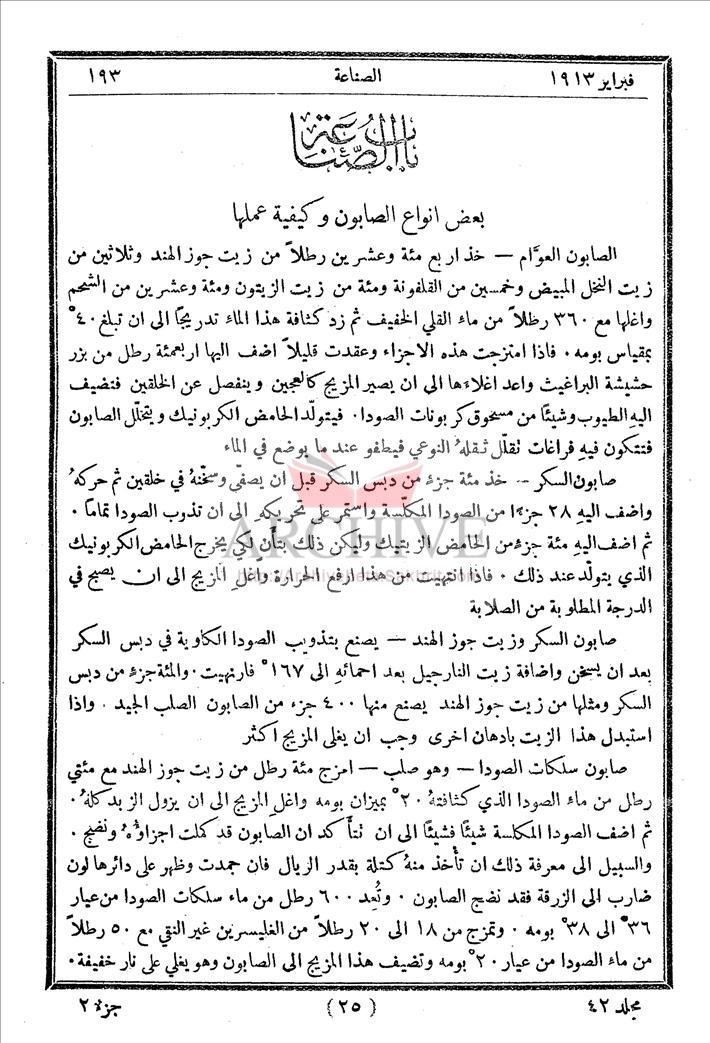 فبراير ١٩١٣ الصناعة ١٩٣
باب الصناعة
بعض انواع الصابون وكيفية عملها
الصابون العوَّام — خذ اربع مئة وعشرين رطلاً من زيت جوز الهند وثلاثين من
زيت النخل المبيض وخمسين من القلفونة ومئة من زيت الزيتون ومئة وعشرين من الشحم
واغلها مع ٣٦٠ رطلاً من ماء القلي الخفيف ثم زد كثافة هذا الماء تدريجاً الى ان تبلغ ٤٠°
بمقياس بومه . فاذا امتزجت هذه الاجزاء وعقدت قليلاً اضف اليها اربعمئة رطل من بزر
حشيشة البراغيث واعد اغلاءها الى ان يصير المزيج كالعجين وينفصل عن الخلقين فتضيف
اليه الطيوب وشيئاً من مسحوق كربونات الصودا . فيتولّد الحامض الكربونيك ويتخلّل الصابون
فتتكون فيه فراغات تقلّل ثقله النوعي فيطفو عند ما يوضع في الماء
صابون السكر — خذ مئة جزء من دبس السكر قبل ان يصفّى وسخّنه في خلقين ثم حركه
واضف اليه ٢٨ جزءًا من الصودا المكلّسة واستمر على تحريكه الى ان تذوب الصودا تماماً .
ثم اضف اليه مئة جزء من الحامض الزيتيك وليكن ذلك بتأنٍ لكي يخرج الحامض الكربونيك
الذي يتولّد عند ذلك . فاذا انتهيت من هذا ارفع الحرارة واغلِ المزيج الى ان يصبح في
الدرجة المطلوبة من الصلابة
صابون السكر وزيت جوز الهند — يصنع بتذويب الصودا الكاوية في دبس السكر
بعد ان يسخن واضافة زيت النارجيل بعد احمائه الى ١٦٧° فارنهيت . والمئة جزء من دبس
السكر ومثلها من زيت جوز الهند يصنع منها ٤٠٠ جزء من الصابون الصلب الجيد . واذا
استبدل هذا الزيت بادهان اخرى وجب ان يغلى المزيج اكثر
صابون سلكات الصودا — وهو صلب — امزج مئة رطل من زيت جوز الهند مع مئتي
رطل من ماء الصودا الذي كثافته ٢٠° بميزان بومه واغلِ المزيج الى ان يزول الزبد كله .
ثم اضف الصودا المكلسة شيئاً فشيئاً الى ان تتأكد ان الصابون قد كملت اجزاؤه ونضج .
والسبيل الى معرفة ذلك ان تأخذ منه كتلة بقدر الريال فان جمدت وظهر على دائرها لون
ضارب الى الزرقة فقد نضج الصابون . وتُعِد ٦٠٠ رطل من ماء سلكات الصودا من عيار
٣٦° الى ٣٨° بومه . وتمزج من ١٨ الى ٢٠ رطلاً من الغليسرين غير النقي مع ٥٠ رطلاً
من ماء الصودا من عيار ٢٠° بومه وتضيف هذا المزيج الى الصابون وهو يغلي على نار خفيفة .
مجلد ٤٢ (٢٥) جزء ٢
ARCHIVE